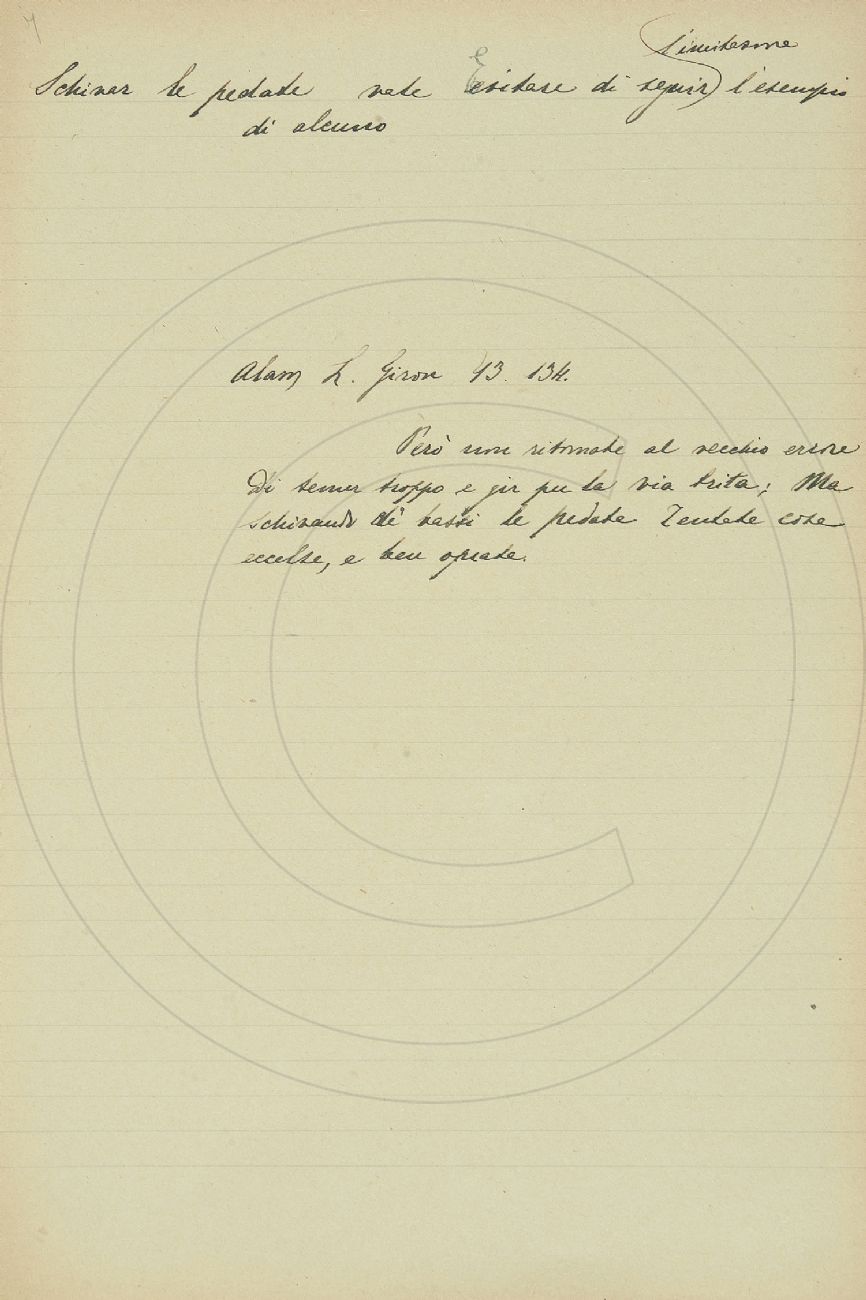 l'imitarne
Schivar le pedate vale Evitare di seguir l'esempio
di alcuno
Alam L. Giron 13. 134.
Però non ritornate al vecchio errore
Di temer troppo e gir per la via trita; Ma
schivando de' bassi le pedate Tentate cose
eccelse, e ben oprate.